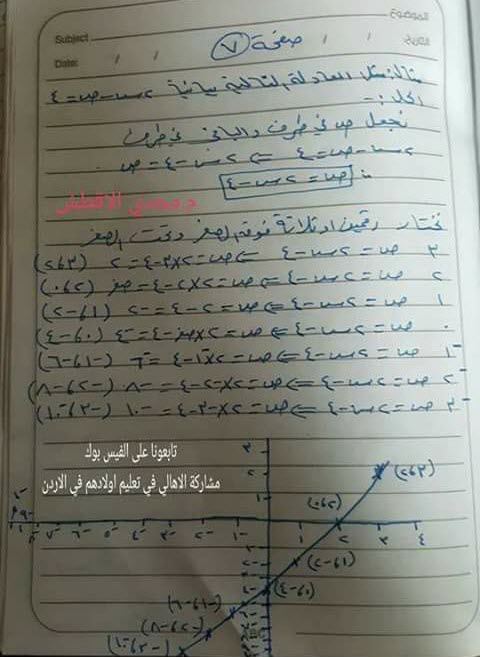 الموضوع
Subject
صفحة (٧)
التاريخ / /
Date: / /
مثال: مثل المعادلة التالية بيانية ٢س-ص=٤
الحل:-
نجعل ص في طرف والباقي في طرف
٢س-ص=٤ => ٢س-٤=ص
ص=٢س-٤
د.مجدي الاقطش
نختار رقمين او ثلاثة فوق الصفر وتحت الصفر
٣ ص=٢س-٤ => ص=٢×٣-٤=٢ (٣،٢)
٢ ص=٢س-٤ => ص=٢×٢-٤=صفر (٢،٠)
١ ص=٢س-٤ => ص=٢-٤=-٢ (١،-٢)
٠ ص=٢س-٤ => ص=٢×صفر-٤=-٤ (٠،-٤)
-١ ص=٢س-٤ => ص=٢×-١-٤=-٦ (-١،-٦)
-٢ ص=٢س-٤ => ص=٢×-٢-٤=-٨ (-٢،-٨)
-٣ ص=٢س-٤ => ص=٢×-٣-٤=-١٠ (-٣،-١٠)
تابعونا على الفيس بوك
مشاركة الاهالي في تعليم اولادهم في الاردن
٣
٢
١
(٣،٢)
(٢،٠)
-٧ -٦ -٥ -٤ -٣ -٢ -١ ١ ٢ ٣ ٤
(١،-٢)
(٠،-٤)
(-١،-٦)
(-٢،-٨)
(-٣،-١٠)